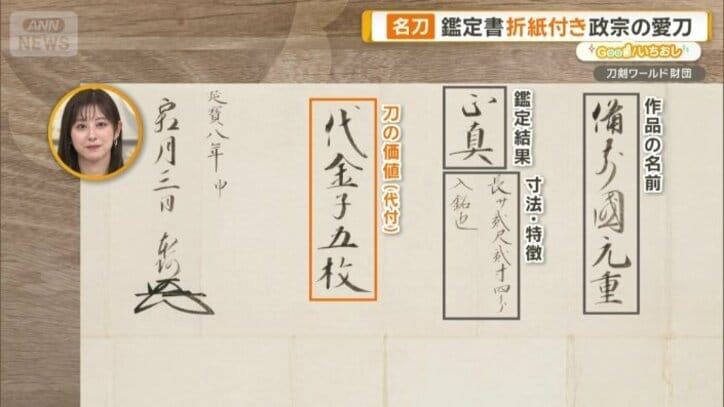 ANN NEWS
名刀 鑑定書折紙付き 政宗の愛刀
Good!いちおし
刀剣ワールド財団
作品の名前
備前國元重
鑑定結果
正真
寸法・特徴
長サ貮尺貮寸四分
入銘也
刀の価値(代付)
代金子五枚
延寳八年申
霜月三日